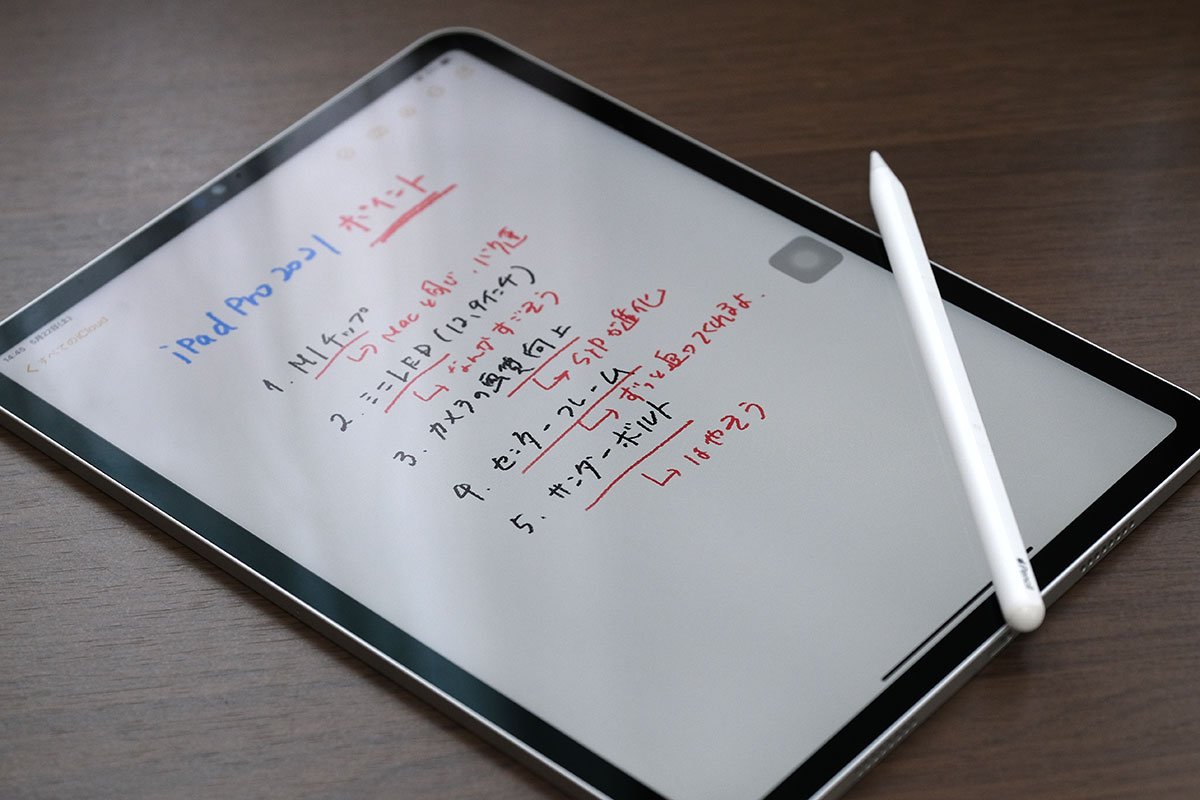 14:45 5月22日(土)
<すべてのiCloud
iPad Pro 2021 ポイント
1. M1チップ
↳ Macと同じ.バク速
2. ミニLED(12,9インチ)
↳ なんかすごそう
3. カメラの画質向上
↳ SIPが進化
4. センターフレーム
↳ ずっと追ってくれるよ.
5. サンダーボルト
↳ はやそう
Pencil